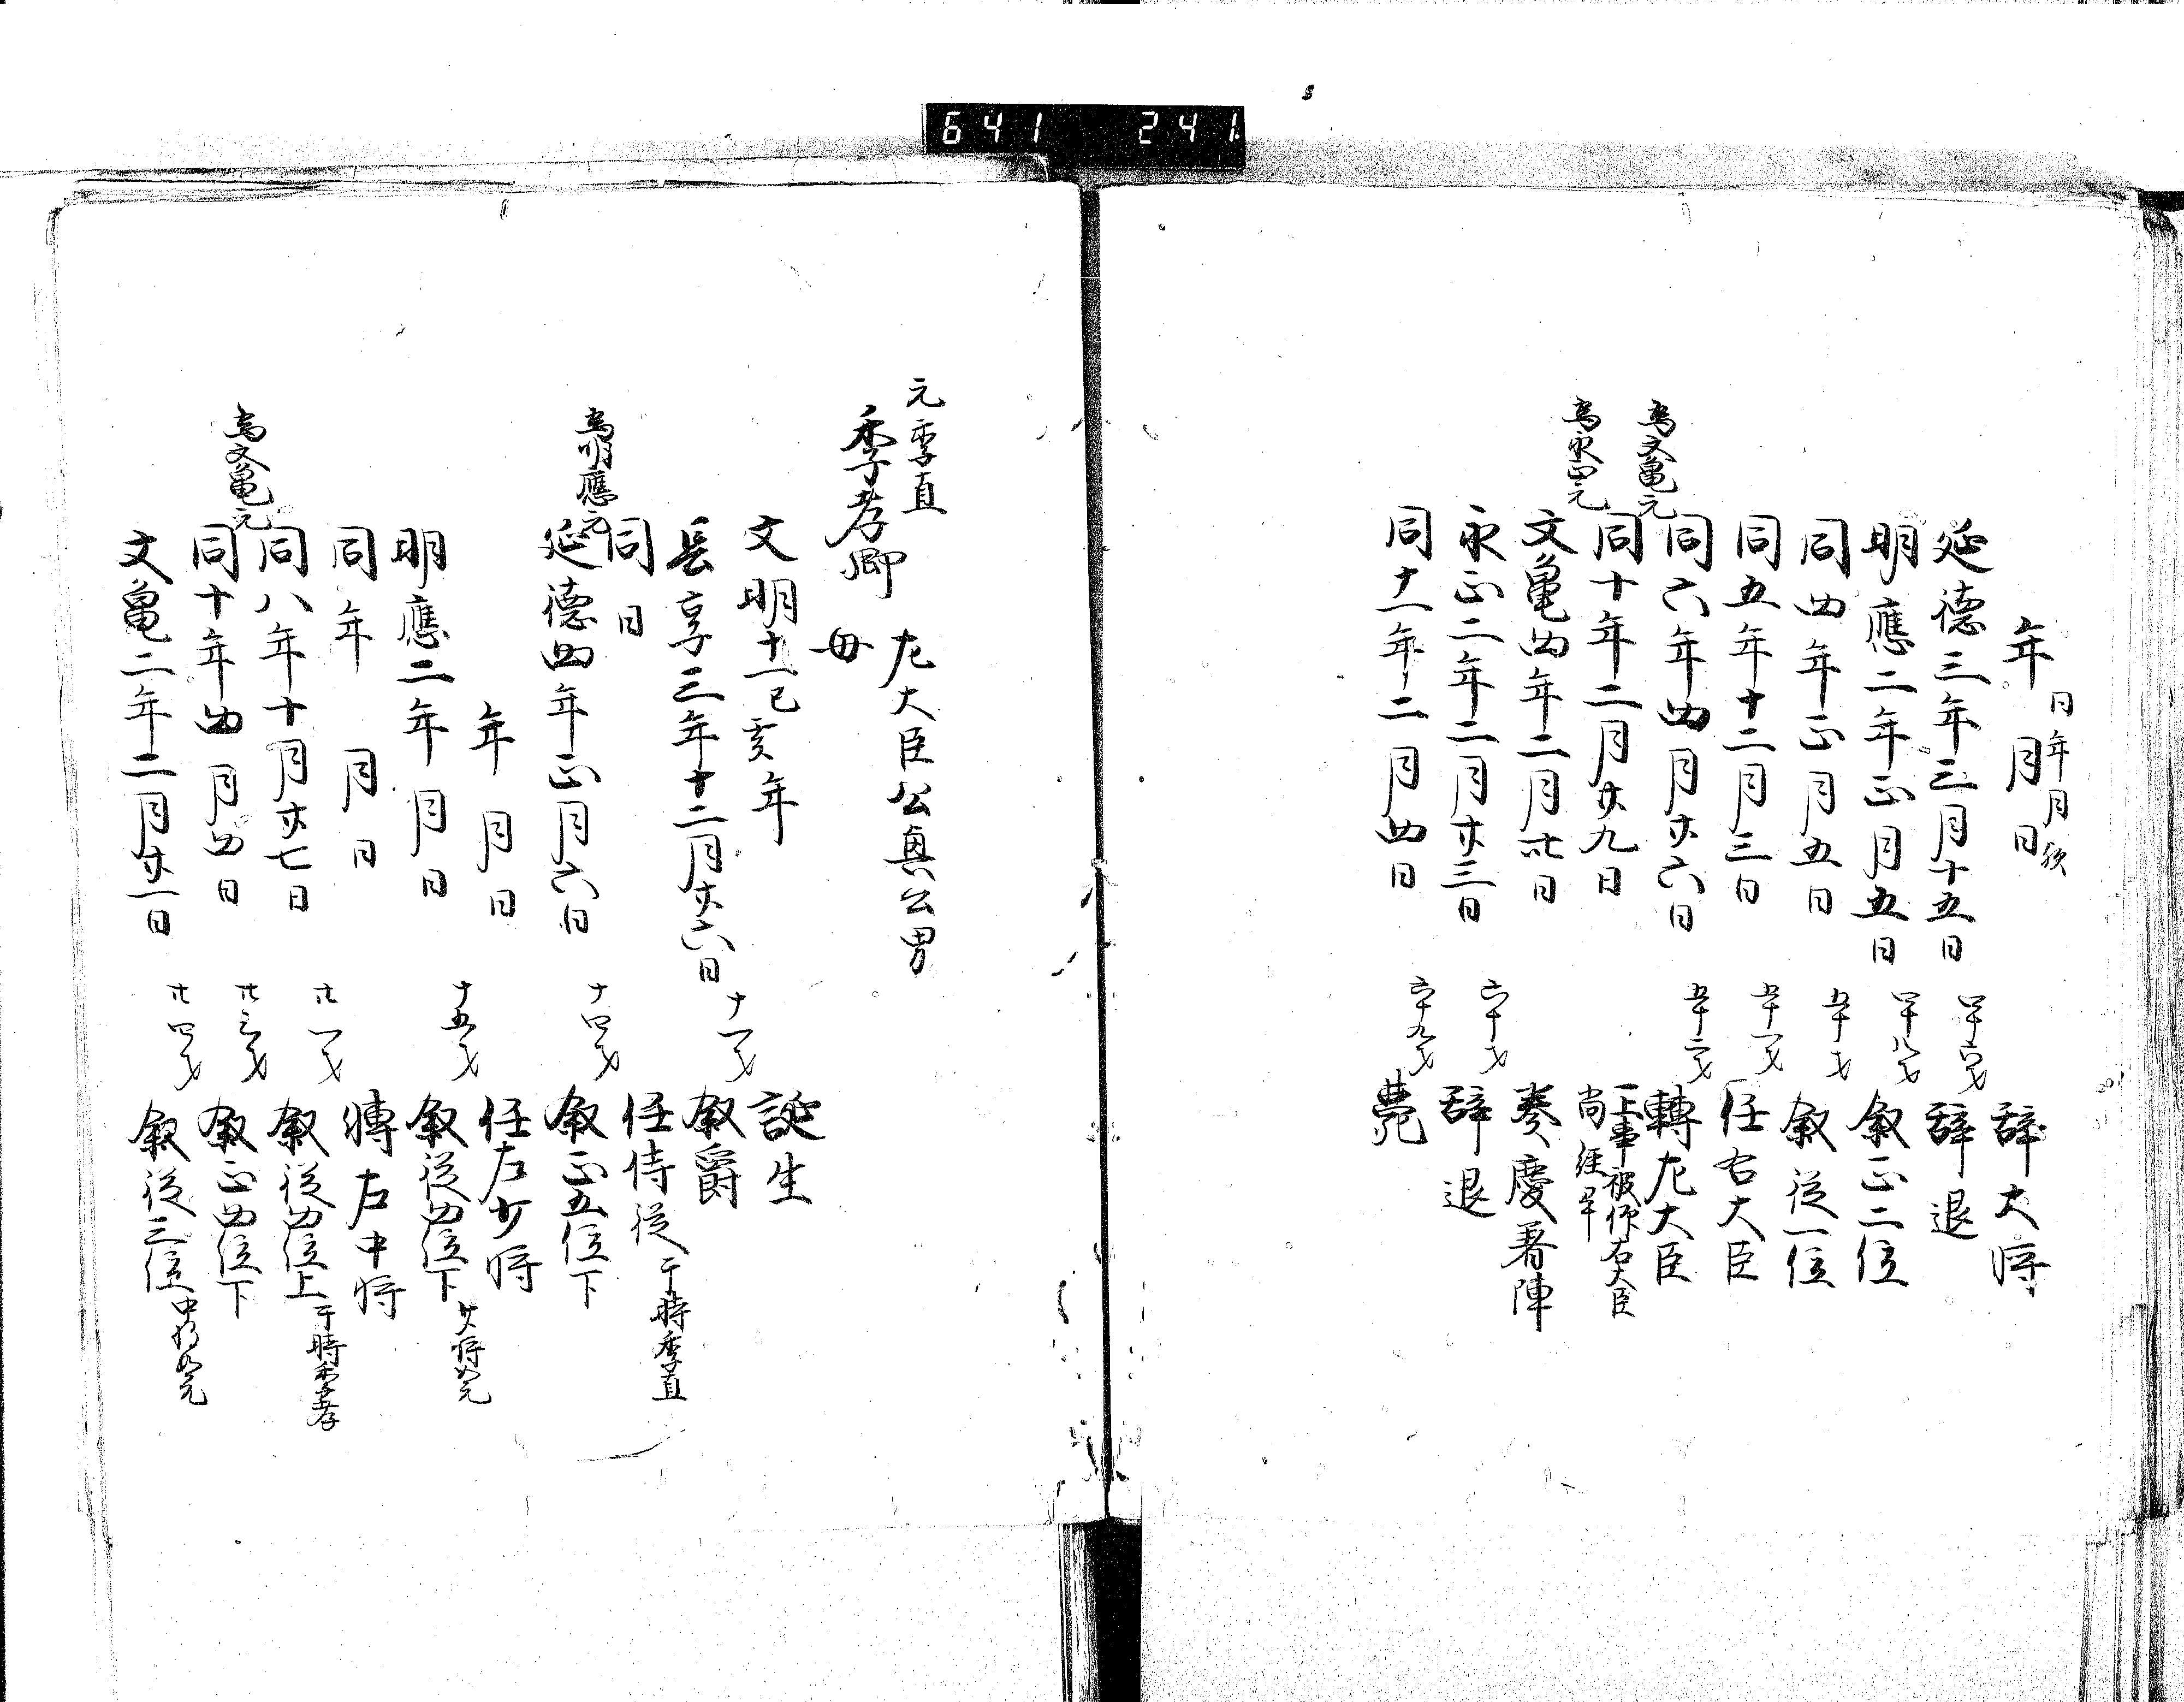 641 241
年月日 辞大将
日年月
延德三年三月十五日 四十六才 辞退
明應二年正月五日 四十八才 叙正二位
同四年正月五日 五十才 叙従一位
同五年十二月三日 五十一才 任右大臣
同六年四月廿六日 五十二才 轉左大臣
為文亀元
同十年二月廿九日 一上事被仰右大臣
尚経畢
為永正元
文亀四年二月卅日 奏慶著陣
永正二年二月廿三日 六十才 辞退
同十一年二月四日 六十九才 薨
元季直
左大臣公真公男
季孝卿 母
文明十一己亥年 誕生
長享三年十二月廿六日 十一才 叙爵
同日 任侍従 于時季直
為明應元
延德四年正月六日 十四才 叙正五位下
年月日 任左少将
明應二年月日 十五才 叙従四位下 少将如元
同年月日 轉左中将
同八年十月廿七日 廿一才 叙従四位上 于時季孝
為文亀元
同十年四月四日 廿三才 叙正四位下
文亀二年二月廿一日 廿四才 叙従三位 中将如元